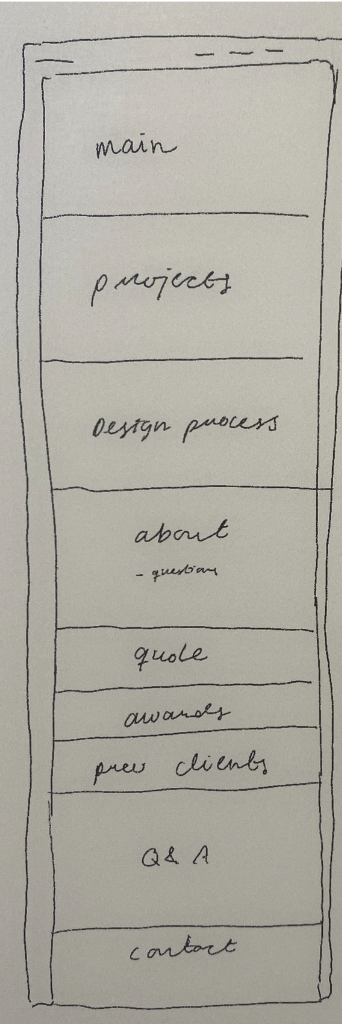 main
projects
Design process
about
- questions
quote
awards
prev clients
Q & A
contact